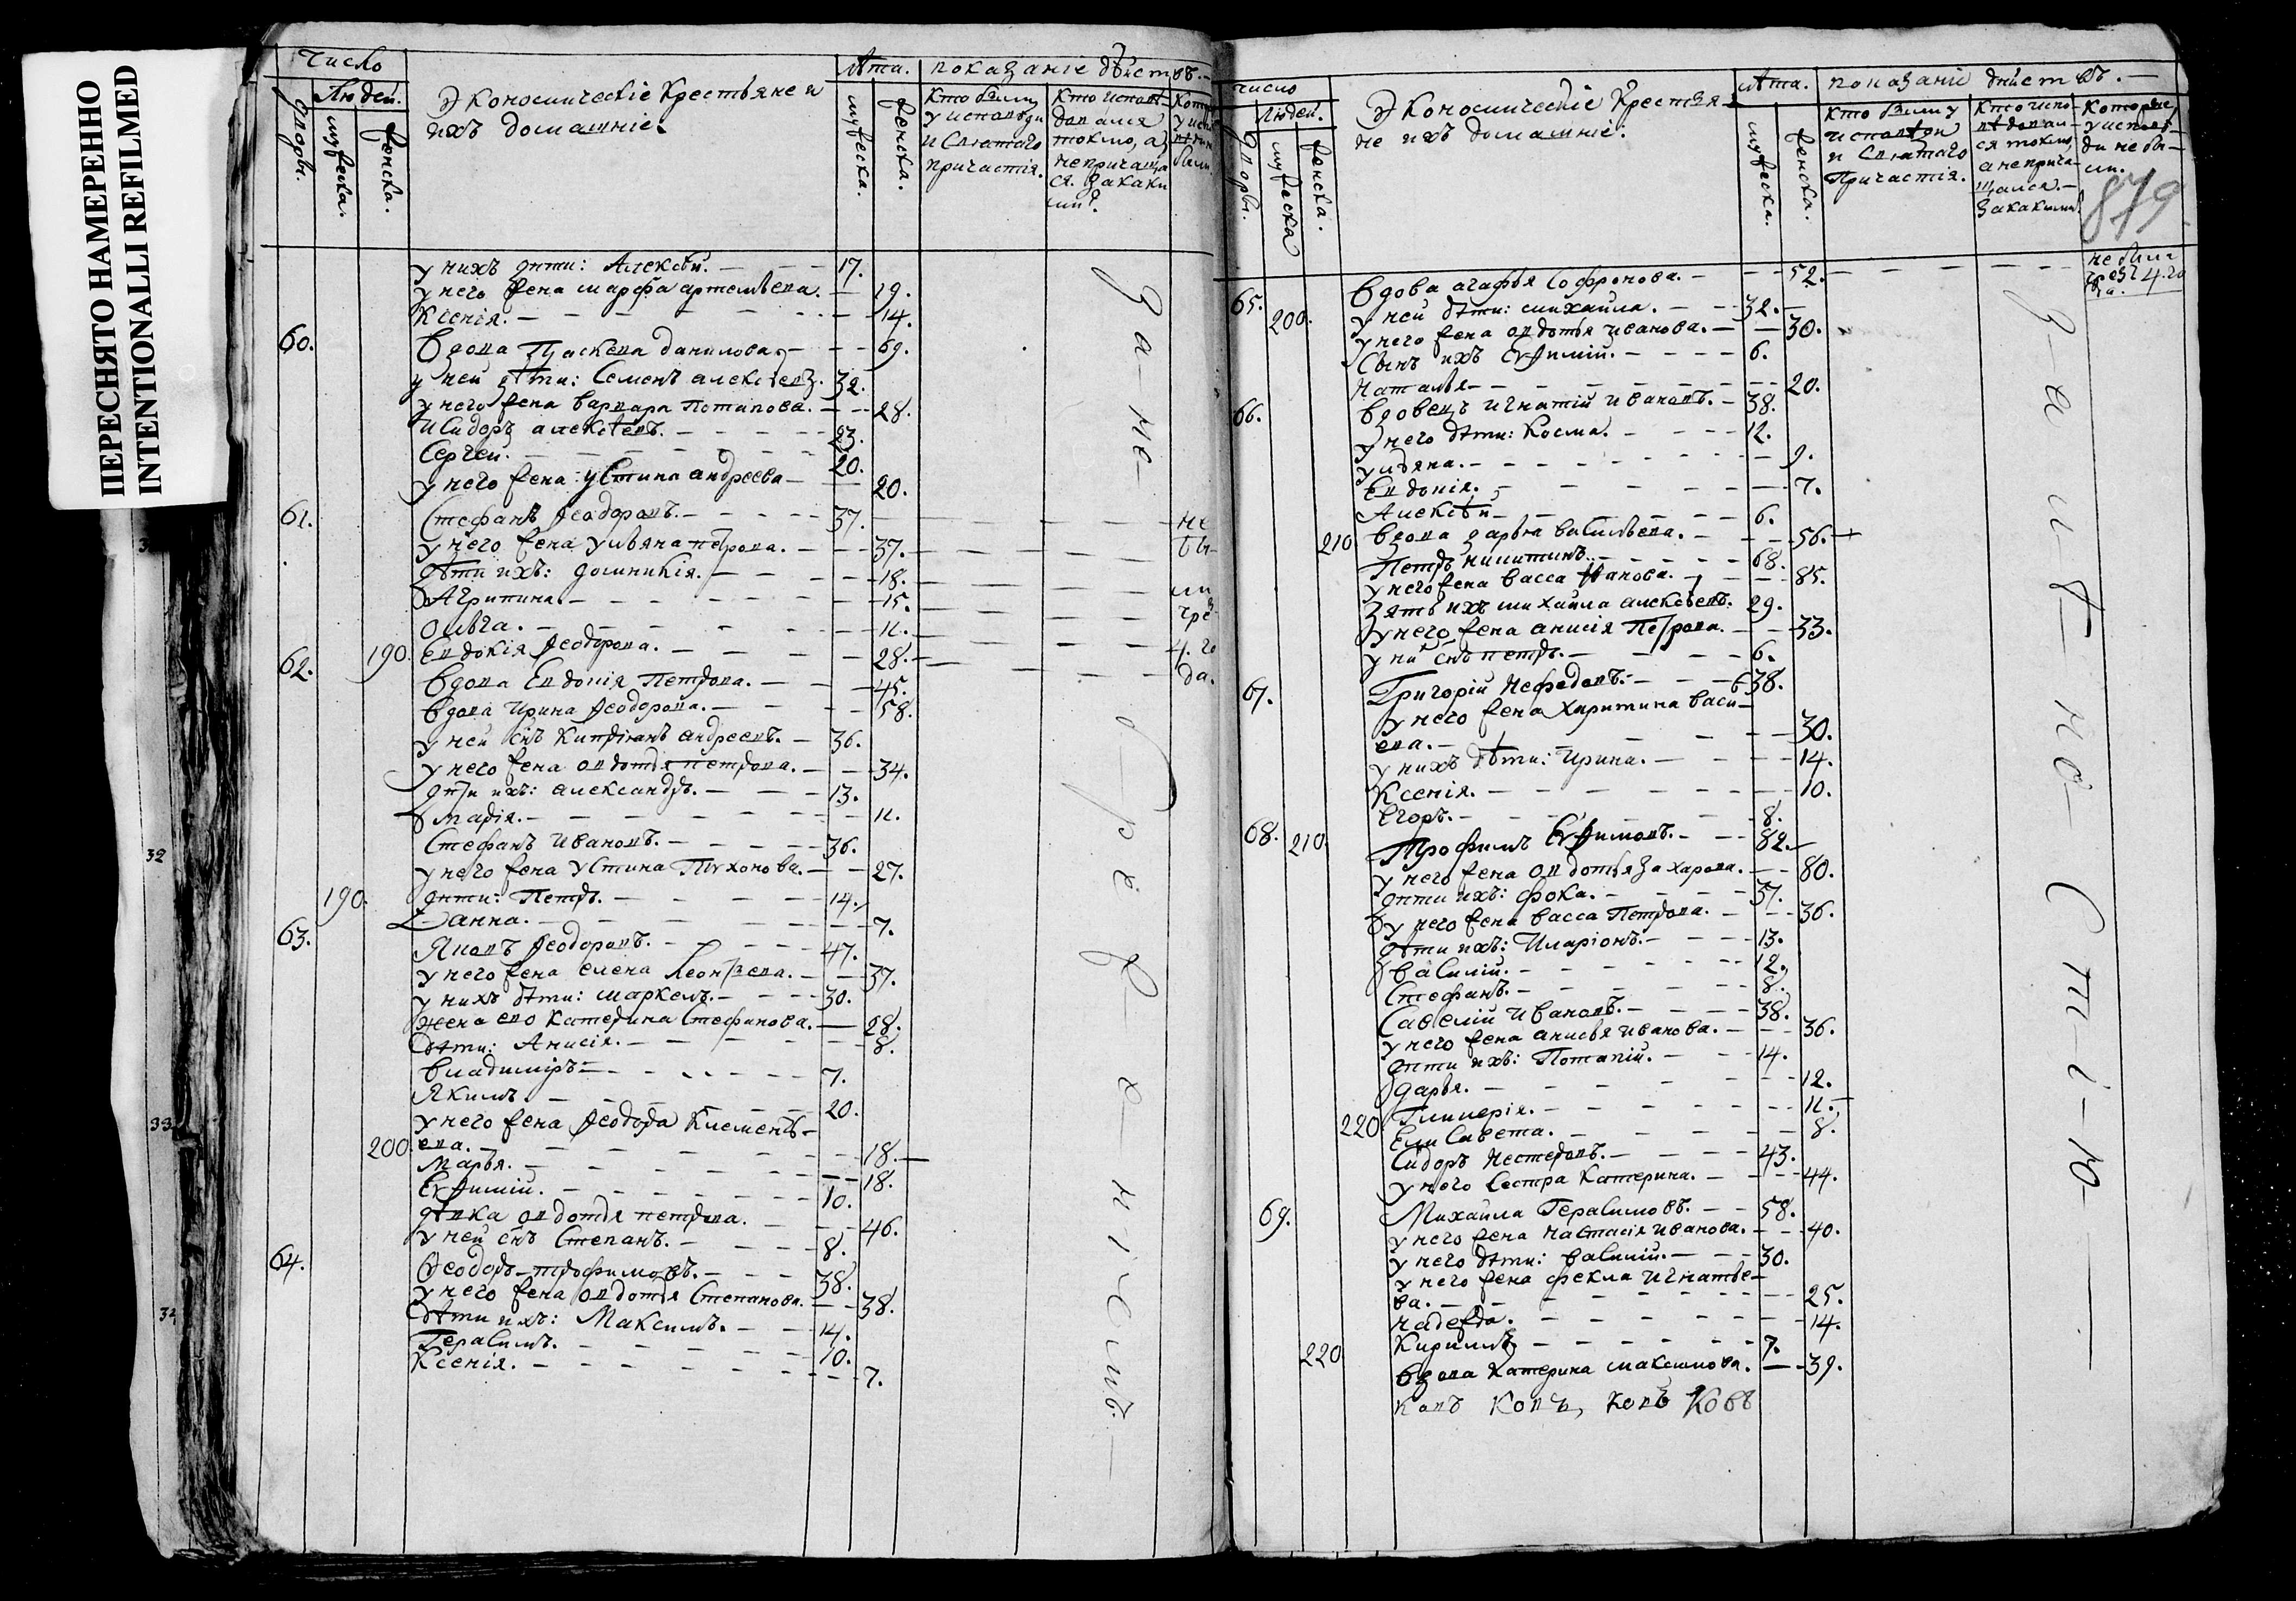 ПЕРЕСНЯТО НАМЕРЕННО
INTENTIONALLI REFILMED
Число
Людей.
Дворы.
мужеска.
женска.
Экономическіе Крестьяне и
ихъ домашніе.
Лѣта.
мужеска.
женска.
показаніе дѣйствъ.
Кто были
у исповѣди
и Святаго
причастія.
Кто исповѣ
давался
токмо, а
не причаща
ся. за каки
у нихъ дѣти: Алексѣй. — 17.
у него жена марѳа артемьева. — 19.
Ксенія. — 14.
60. Вдова Праскева данилова. — 69.
у ней дѣти: Семенъ алексѣевъ. 32.
у него жена варвара Потапова. — 28.
Исидоръ алексѣевъ. — 23.
Сергей. — 20.
у него жена устина андреева — 20.
61. Стефанъ Ѳеодоровъ. — 37. — не
у него жена ульяна петрова. — 37. — бы-
дѣти ихъ: домникія. — 18. — ли
Агрипина. — 15. — чре
Ольга. — 11. — 4. го
190. Евдокія Ѳеодорова. — 28. — да.
62. Вдова Евдокія Петрова. — 45.
вдова Ирина Ѳеодорова. — 58.
у ней снъ Кипріянъ андреевъ. — 36.
у него жена овдотья петрова. — 34.
дѣти ихъ: александръ. — 13.
марія. — 11.
Стефанъ Ивановъ. — 36.
у него жена Устина Тихонова. — 27.
190. дѣти: Петръ. — 14.
анна. — 7.
63. Яковъ Ѳеодоровъ. — 47.
у него жена елена Леонтьева. — 37.
у нихъ дѣти: маркелъ. — 30.
жена ево Катерина Стефанова. — 28.
дѣти: Анисія. — 8.
владиміръ — 7.
Якимъ. — 20.
у него жена Ѳеодора Клементь-
200. ева. — 18. —
Марья. — 18.
Евфимій. — 10.
дѣвка овдотья петрова. — 46.
у ней снъ Степанъ. — 8.
64. Ѳеодоръ трофимовъ. — 38.
у него жена овдотья Степанова. — 38.
дѣти ихъ: Максимъ. — 14.
Герасимъ. — 10.
Ксенія. — 7.
За не бреженіемъ. —
число
Людей.
Дворы.
мужеска
женска.
Экономическіе Крестья-
не ихъ домашніе.
Лѣта.
мужеска.
женска.
показаніе дѣйствъ. —
Кто были у
исповѣди
и Святаго
Причастія.
Кто испо-
вѣдовал-
ся токмо,
а не прича-
щался. —
за какимъ
Которые
у исповѣ-
ди не бы-
ли.
879
вдова агафья Софронова. — 52. — не были
чрезъ 4. го
да.
65. 200. у ней дѣти: михайла. — 32. —
у него жена овдотья иванова. — 30.
Сынъ ихъ Евфимій. — 6.
наталья — 20.
66. вдовецъ игнатій ивановъ. — 38.
у него дѣти: Косма. — 12.
ульяна. — 9.
Евдокія. — 7.
Алексѣй — 6.
210 вдова дарья васильева. — 56. —
Петръ никитинъ. — 68.
у него жена васса иванова. — 85.
Зять ихъ михайла алексѣевъ. 29.
у него жена анисія Петрова. — 33.
у них снъ петръ. — 6.
67. Григорій Нефедовъ. — 38.
у него жена Харитина васи-
ева. — 30.
у нихъ дѣти: Ирина. — 14.
Ксенія. — 10.
Егоръ. — 8.
68. 210. Трофимъ Евфимовъ. — 82.
у него жена овдотья захарова. — 80.
дѣти ихъ: фока. — 37.
у него жена васса Петрова. — 36.
дѣти ихъ: Иларіонъ. — 13.
василій. — 12.
Стефанъ. — 8.
Савелій ивановъ. — 38.
у него жена анисья иванова. — 36.
дѣти ихъ: Потапій. — 14.
дарья. — 12.
Гликерія. — 11. —
220 Елисавета. — 8.
Сидоръ Нестеровъ. — 43.
у него Сестра Катерина. — 44.
69. Михайла Герасимовъ. — 58.
у него жена настасія иванова. — 40.
у него дѣти: василій. — 30.
у него жена фекла игнатье-
ва. — 25.
надежда. — 14.
220 Кирилъ — 7.
вдова катерина максимова. — 39.
ковъ ковъ, ковъ Ковъ